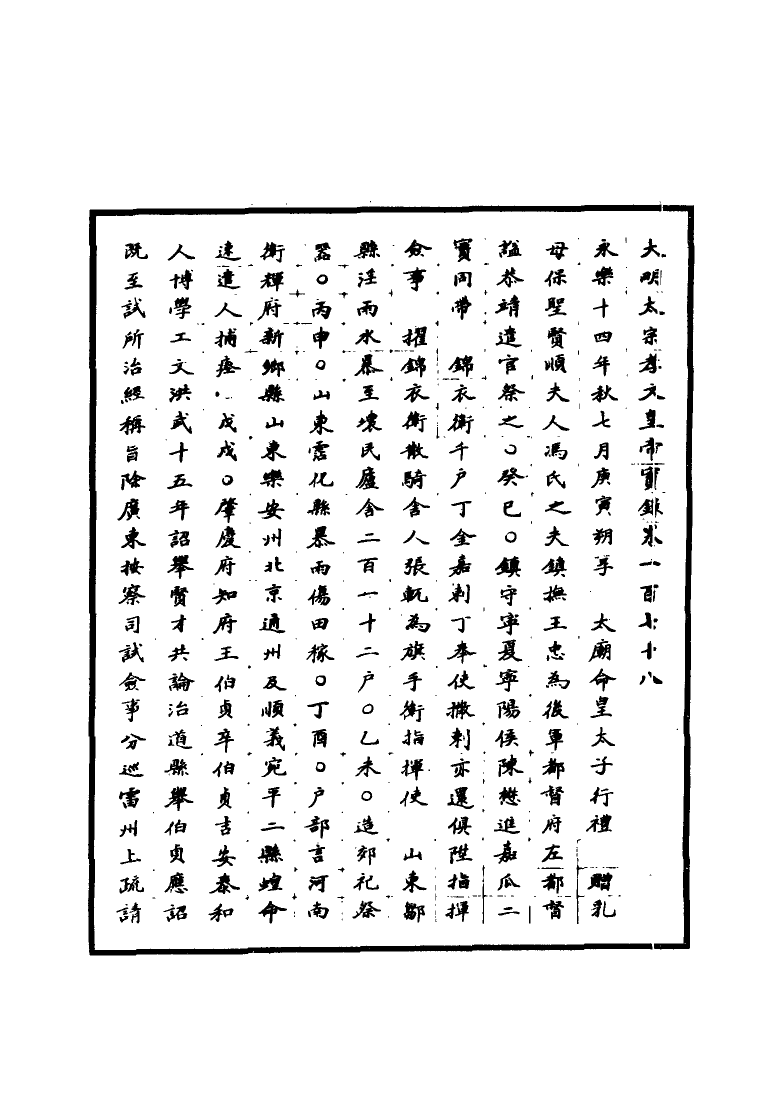 大明太宗孝文皇帝實錄卷一百七十八
永樂十四年秋七月庚寅朔享　太廟命皇太子行禮　贈乳
母保聖賢順夫人馮氏之夫鎮撫王忠為後軍都督府左都督
謚恭靖遣官祭之○癸巳○鎮守寧夏寧陽侯陳懋進嘉瓜二
實同帶　錦衣衛千户丁全嘉剌丁奉使撒剌亦還俱陞指揮
僉事　擢錦衣衛散騎舍人張軏為旗手衛指揮使　山東鄒
縣淫雨水暴至壞民廬舍二百一十二户○乙未○造郊祀祭
器○丙申○山東霑化縣暴雨傷田稼○丁酉○户部言河南
衛輝府新鄉縣山東樂安州北京通州及順義宛平二縣蝗命
速遣人捕瘞．戊戌○肇慶府知府王伯貞卒伯貞吉安泰和
人博學工文洪武十五年詔舉賢才共論治道縣舉伯貞應詔
既至試所治經稱旨除廣東按察司試僉事分巡雷州上疏請